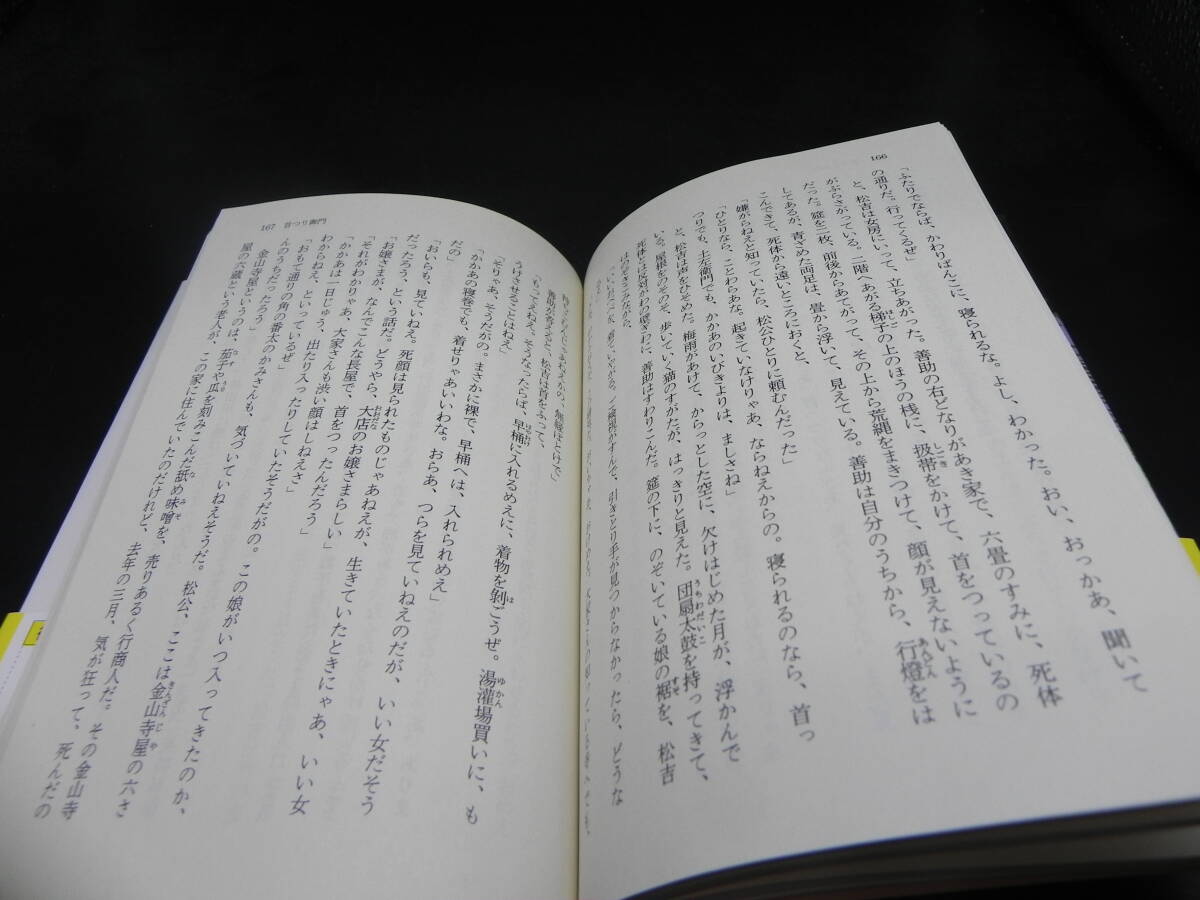 166
「ふたりでならば、かわりばんこに、寝られるな。よし、わかった。おい、おっかあ、聞いて
の通りだ。行ってくるぜ」
と、松吉は女房にいって、立ちあがった。善助の右どなりがあき家で、六畳のすみに、死体
がぶらさがっている。二階へあがる梯子の上のほうの桟に、扱帯をかけて、首をつっているの
だった。筵を二枚、前後からあてがって、その上から荒縄をまきつけて、顔が見えないように
してあるが、青ざめた両足は、畳から浮いて、見えている。善助は自分のうちから、行燈をは
こんできて、死体から遠いところにおくと、
「嫌がらねえと知っていたら、松公ひとりに頼むんだった」
「ひとりなら、ことわらあな。起きていなけりゃあ、ならねえからの。寝られるのなら、首っ
つりでも、土左衛門でも、かかあのいびきよりは、ましさね」
と、松吉は声をひそめた。梅雨があけて、からっとした空に、欠けはじめた月が、浮かんで
いる。屋根をのそのそ、歩いていく猫のすがたが、はっきりと見えた。団扇太鼓を持ってきて、
死体とは反対がわの壁ぎわに、善助はすわりこんだ。筵の下に、のぞいている娘の裾を、松吉
はのぞきこみながら、
167 首つり御門
善助が答えると、松吉は首をふって、
「もってえねえ。そうなったらば、早桶に入れるめえに、着物を剝ごうぜ。湯灌場買いに、も
うけさせることはねえ」
「そりゃあ、そうだがの。まさかに裸で、早桶へは、入れられめえ」
「かかあの寝巻でも、着せりゃあいいわな。おらあ、つらを見ていねえのだが、いい女だそう
だの」
「おいらも、見ていねえ。死顔は見られたものじゃあねえが、生きていたときにゃあ、いい女
だったろう、という話だ。どうやら、大店のお嬢さまらしい」
「お嬢さまが、なんでこんな長屋で、首をつったんだろう」
「それがわかりゃあ、大家さんも渋い顔はしねえさ」
「かかあは一日じゅう、出たり入ったりしていたそうだがの。この娘がいつ入ってきたのか、
わからねえ、といっているぜ」
「おもて通りの角の番太のかみさんも、気づいていねえそうだ。松公、ここは金山寺屋の六さ
んのうちだったろう」
金山寺屋というのは、茄子や瓜を刻みこんだ舐め味噌を、売りあるく行商人だ。その金山寺
屋の六蔵という老人が、この家に住んでいたのだけれど、去年の三月、気が狂って、死んだの